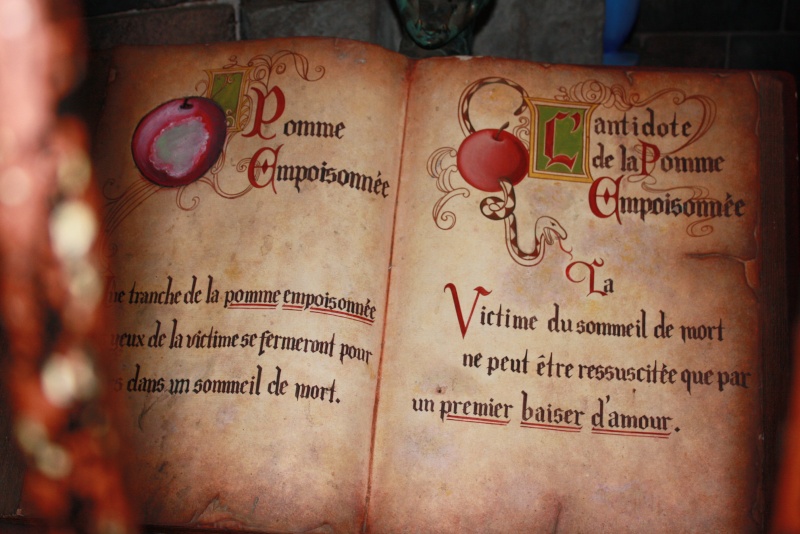 Pomme
Empoisonnée
tranche de la pomme empoisonnée
yeux de la victime se fermeront pour
dans un sommeil de mort.
L'antidote
de la Pomme
Empoisonnée
La
Victime du sommeil de mort
ne peut être ressuscitée que par
un premier baiser d'amour.